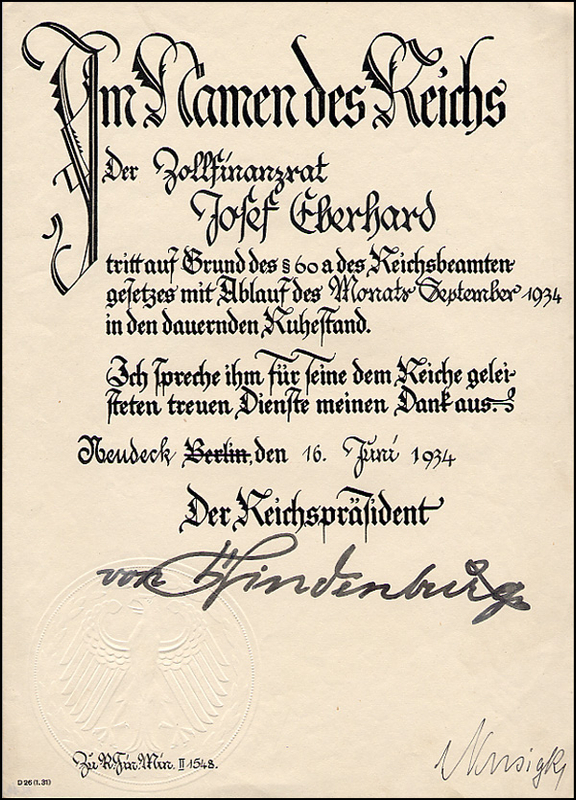 Im Namen des Reichs
Der Zollfinanzrat
Josef Eberhard
tritt auf Grund des § 60 a des Reichsbeamten-
gesetzes mit Ablauf des Monats September 1934
in den dauernden Ruhestand.
Ich spreche ihm für seine dem Reiche gelei-
steten treuen Dienste meinen Dank aus.
Neudeck Berlin, den 16. Juni 1934
Der Reichspräsident
von Hindenburg
Zu R.Fin.Min. II 1548.
D 26 (1.31)